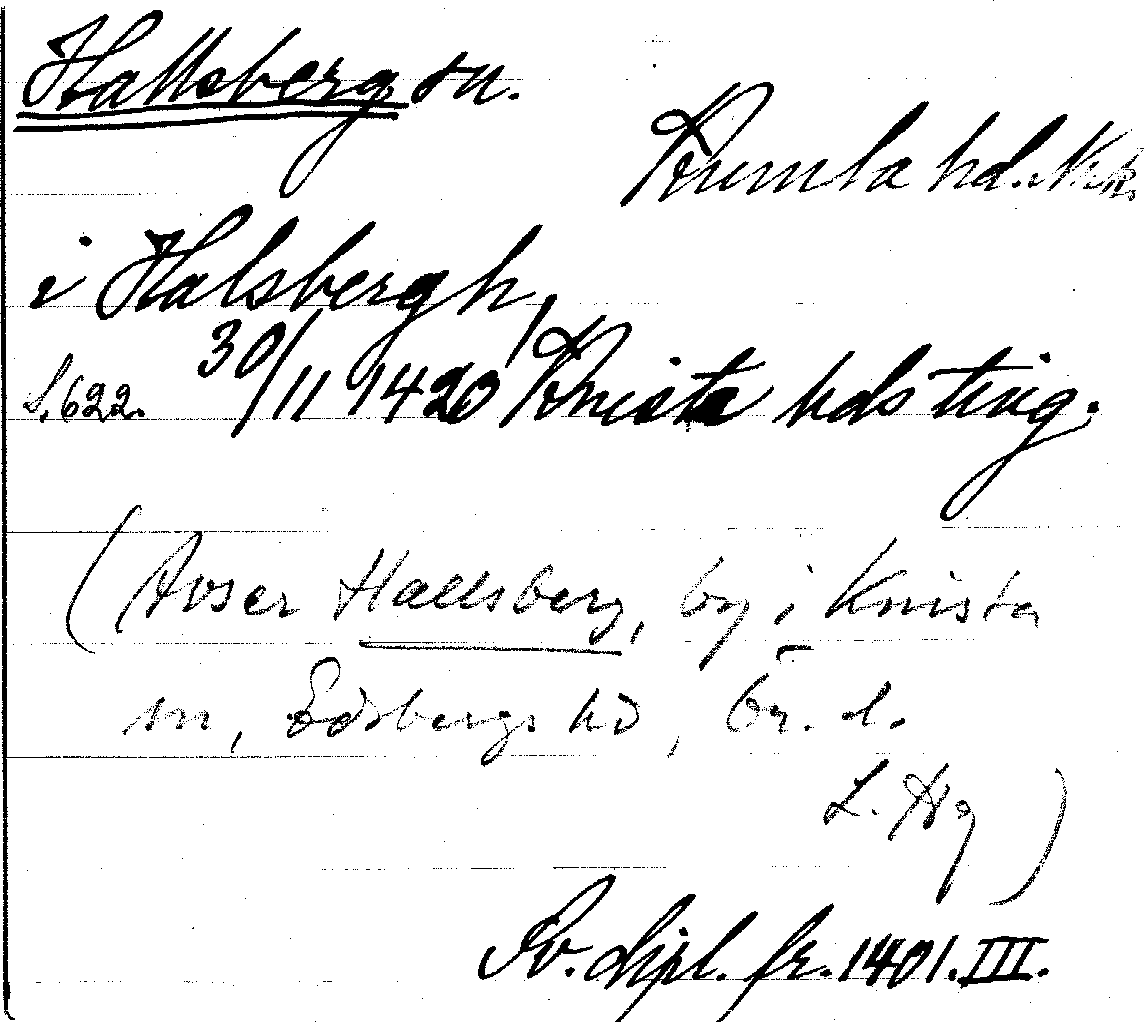 Hallsberg sn.
Kumla hd. Nrk.
i Halsbergh,
s. 622. 30/11 1420 Knista hds ting.
(Avser Hallsberg, by i Knista
sn, Edsbergs hd, Ör. l.
L. Hg)
Sv. dipl. fr. 1401. III.